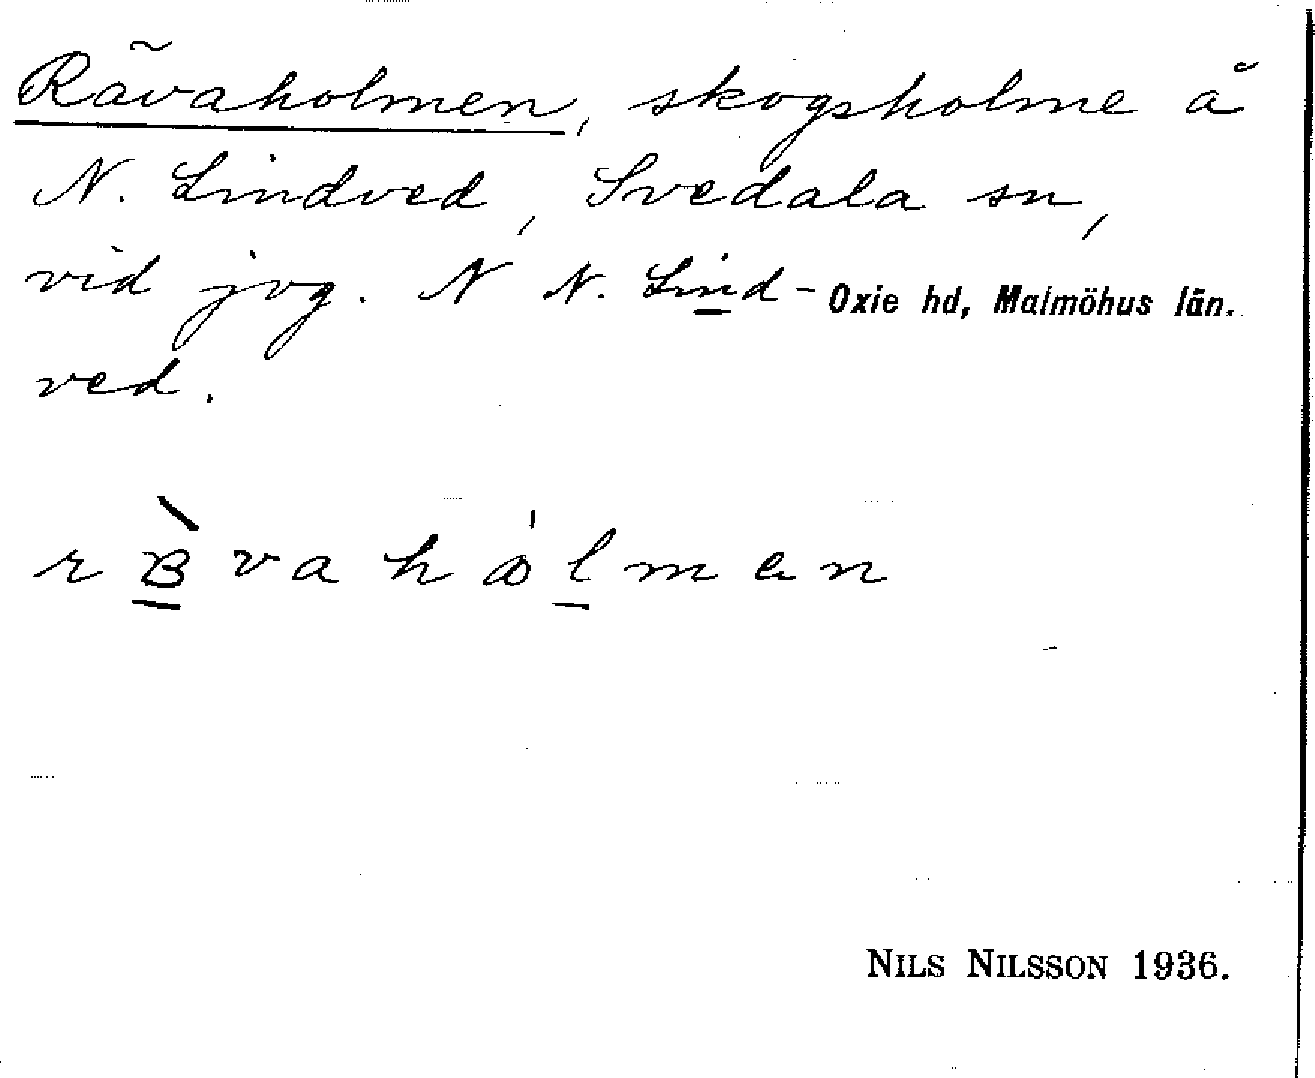 Rävaholmen, skogsholme å
N. Lindved, Svedala sn,
vid jvg. N N. Lind-
Oxie hd, Malmöhus län.
ved.
NILS NILSSON 1936.